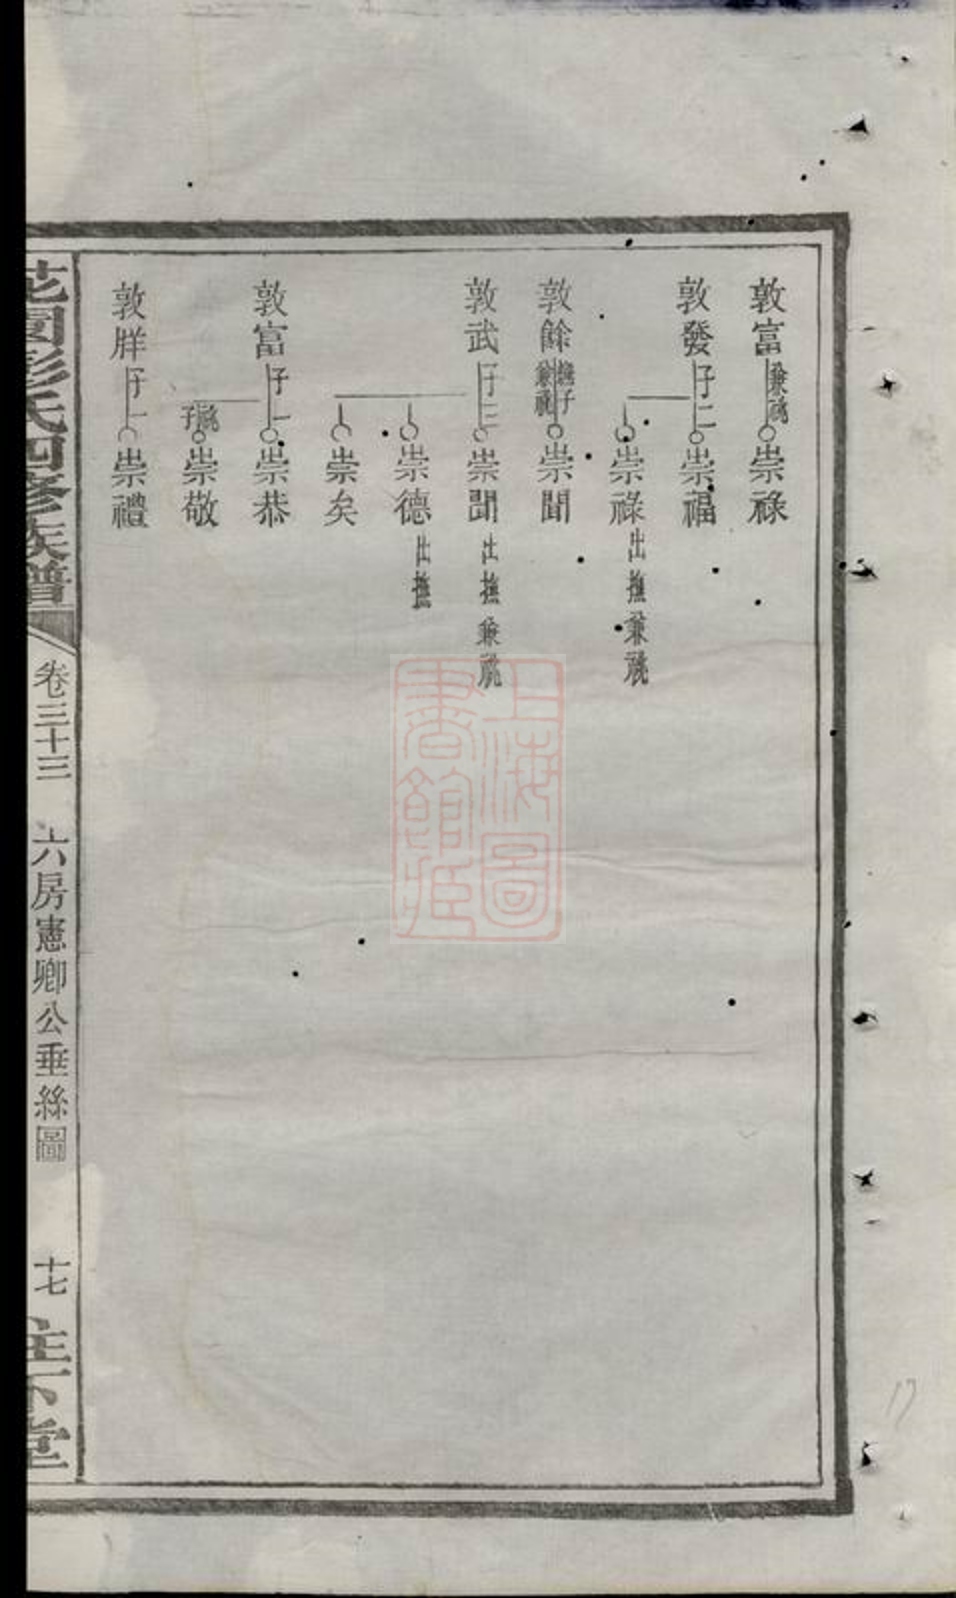 敦富兼祧崇祿
敦發子二崇福
崇祿出撫兼祧
敦餘撫子兼祧崇聞
敦武子三崇聞出撫兼祧
崇德出撫
崇矣
敦富子一崇恭
祧子崇敬
敦牂子一崇禮
花園彭氏四修族譜
卷三十三
六房憲卿公垂絲圖
十七
柱下堂
上海圖
書館藏
17